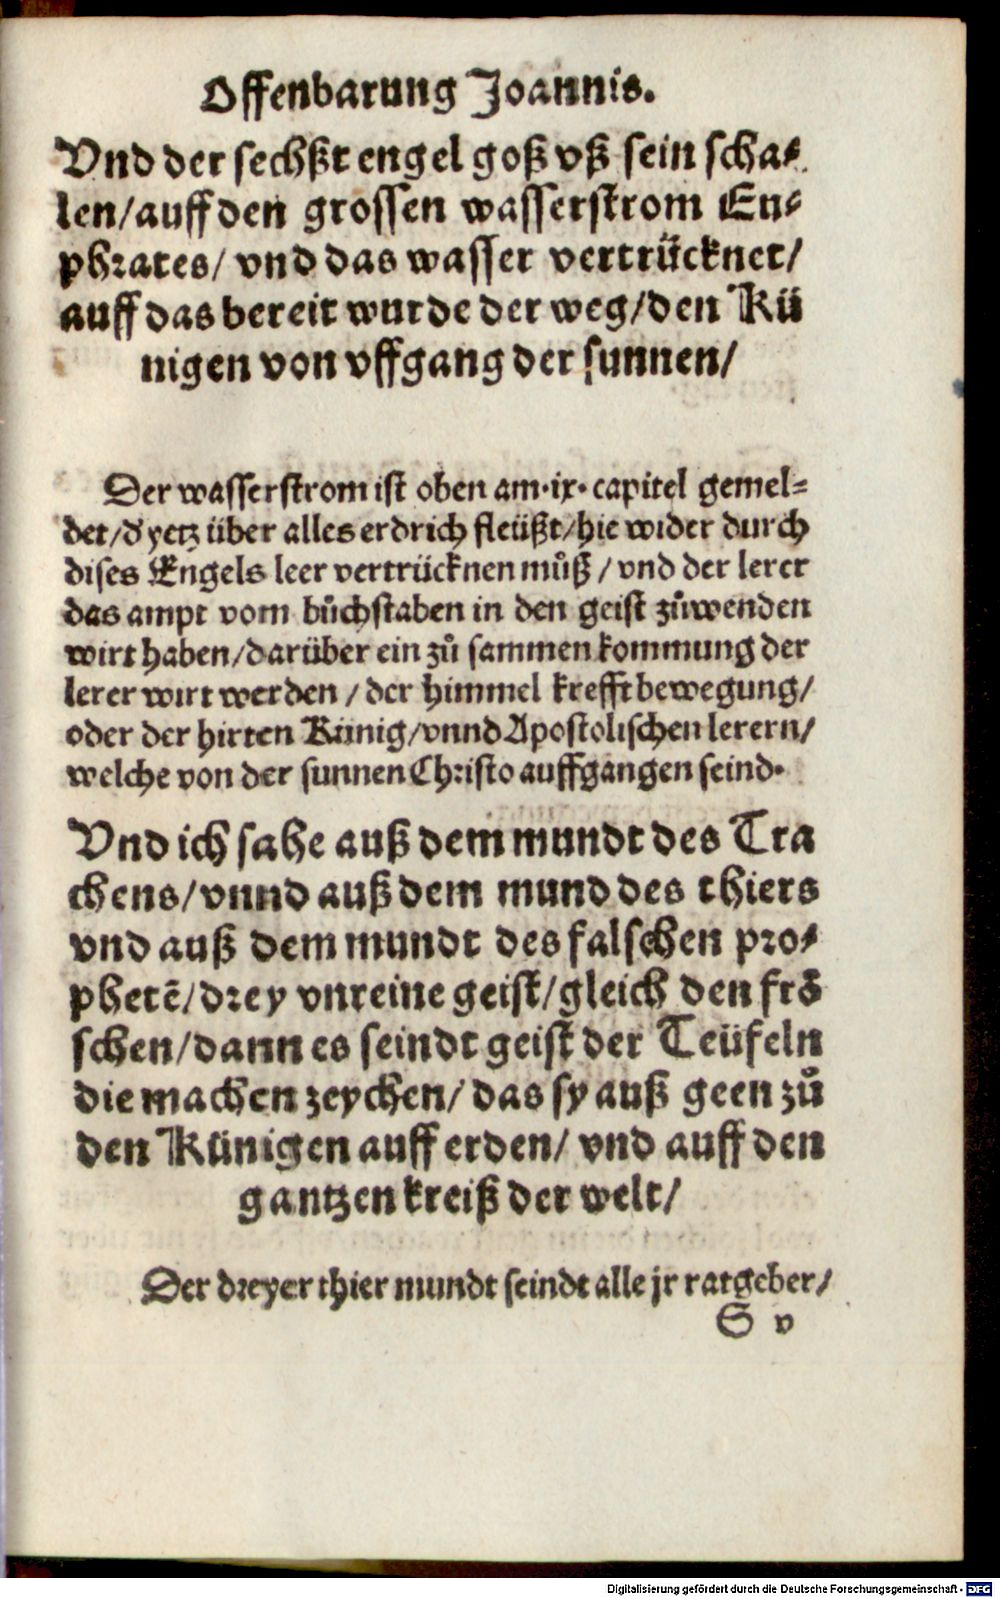 Offenbarung Joannis.
Vnd der sechßt engel goß vß sein scha⸗
len/auff den grossen wasserstrom Eu⸗
phrates/ vnd das wasser vertrücknet/
auff das bereit wurde der weg/den Kü
nigen von vffgang der sunnen/
Der wasserstrom ist oben am·ix·capitel gemel⸗
det/d' yetz über alles erdrich fleüßt/hie wider durch
dises Engels leer vertrücknen můß/vnd der lerer
das ampt vom bůchstaben in den geist zůwenden
wirt haben/darüber ein zů sammen kommung der
lerer wirt werden/der himmel krefft bewegung/
oder der hirten Künig/vnnd Apostolischen lerern/
welche von der sunnen Christo auffgangen seind·
Vnd ich sahe auß dem mundt des Tra
chens/vnnd auß dem mund des thiers
vnd auß dem mundt des falschen pro⸗
phetē/drey vnreine geist/gleich den frö
schen/dann es seindt geist der Teüfeln
die machen zeychen/ das sy auß geen zů
den Künigen auff erden/ vnd auff den
gantzen kreiß der welt/
Der dreyer thier mundt seindt alle jr ratgeber/
S v
Digitalisierung gefördert durch die Deutsche Forschungsgemeinschaft - DFG